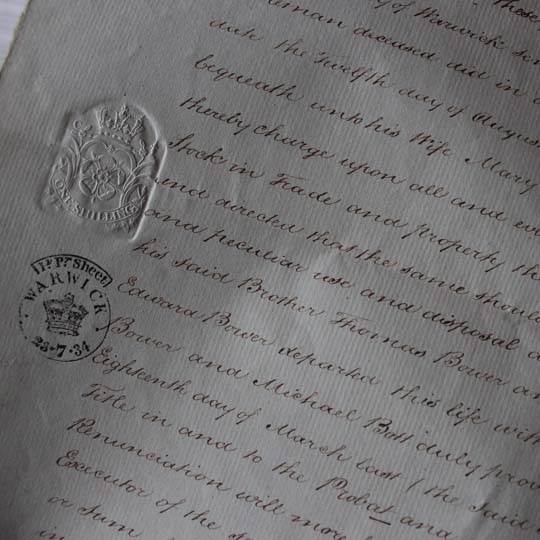 of Warwick
deceased did in
date the Twelfth day of August
bequeath unto his Wife Mary
thereby charge upon all and
Stock in Trade and property
and directed that the same should
and peculiar use and disposal
his said Brother Thomas Bower
Edward Bower departed this life
Bower and Michael Bott duly
Eighteenth day of March last (the said
Title in and to the Probat and
Renunciation will more
Executor of the
or sum
in
ONE SHILLING
WARWICK
23·7·34